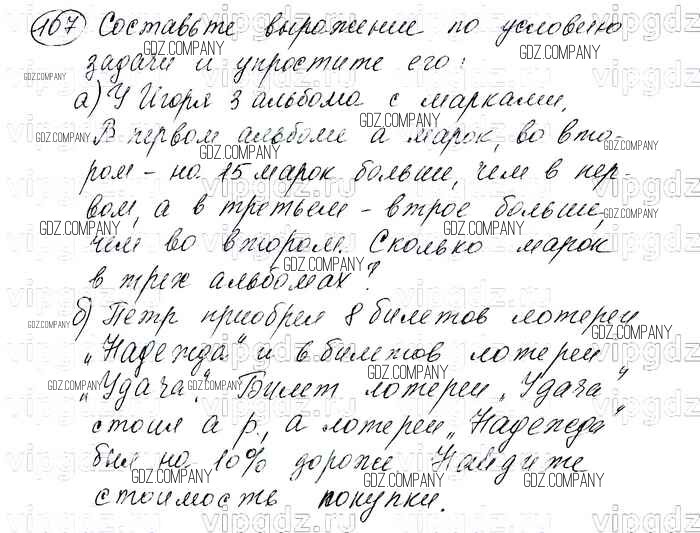 107 Составьте выражение по условию
задачи и упростите его:
а) У Игоря 3 альбома с марками.
В первом альбоме а марок, во вто-
ром - на 15 марок больше, чем в пер-
вом, а в третьем - втрое больше,
чем во втором. Сколько марок
в трех альбомах?
б) Петр приобрел 8 билетов лотереи
"Надежда" и 6 билетов лотереи
"Удача". Билет лотереи "Удача"
стоил а р., а лотереи "Надежда"
был на 10% дороже. Найдите
стоимость покупки.
GDZ.COMPANY
vipgdz.ru